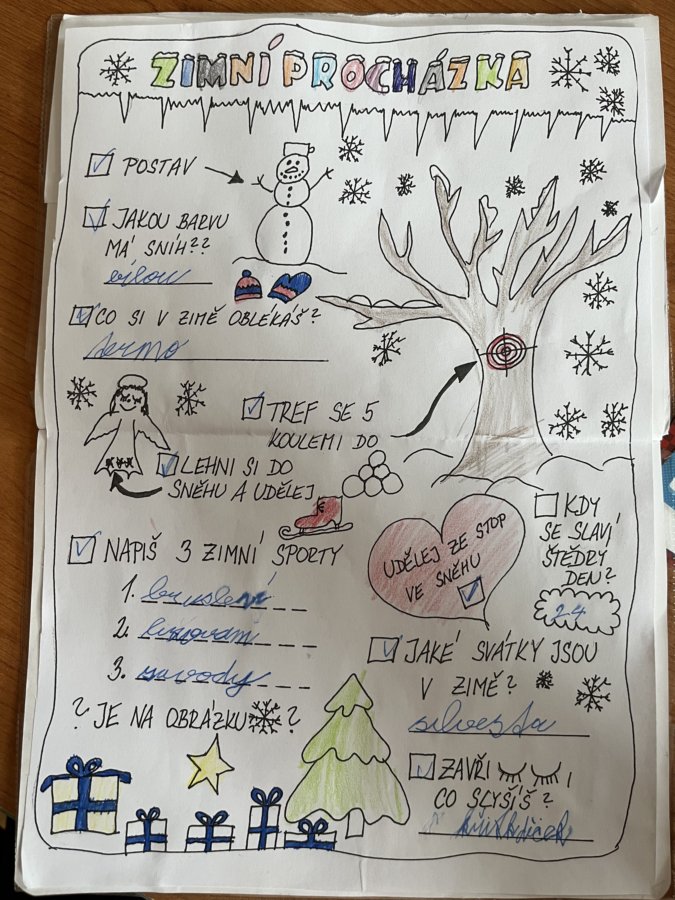 ZIMNÍ PROCHÁZKA
POSTAV
JAKOU BARVU
MÁ SNÍH??
bílou
CO SI V ZIMĚ OBLÉKÁŠ?
TREF SE 5
KOULEMI DO
LEHNI SI DO
SNĚHU A UDĚLEJ
NAPIŠ 3 ZIMNÍ SPORTY
1. bruslení
2.
3. zavody
UDĚLEJ ZE STOP
VE SNĚHU
KDY
SE SLAVÍ
ŠTĚDRÝ
DEN?
24
JAKÉ SVÁTKY JSOU
V ZIMĚ?
silvestr
? JE NA OBRÁZKU ?
ZAVŘI ,
CO SLYŠÍŠ?